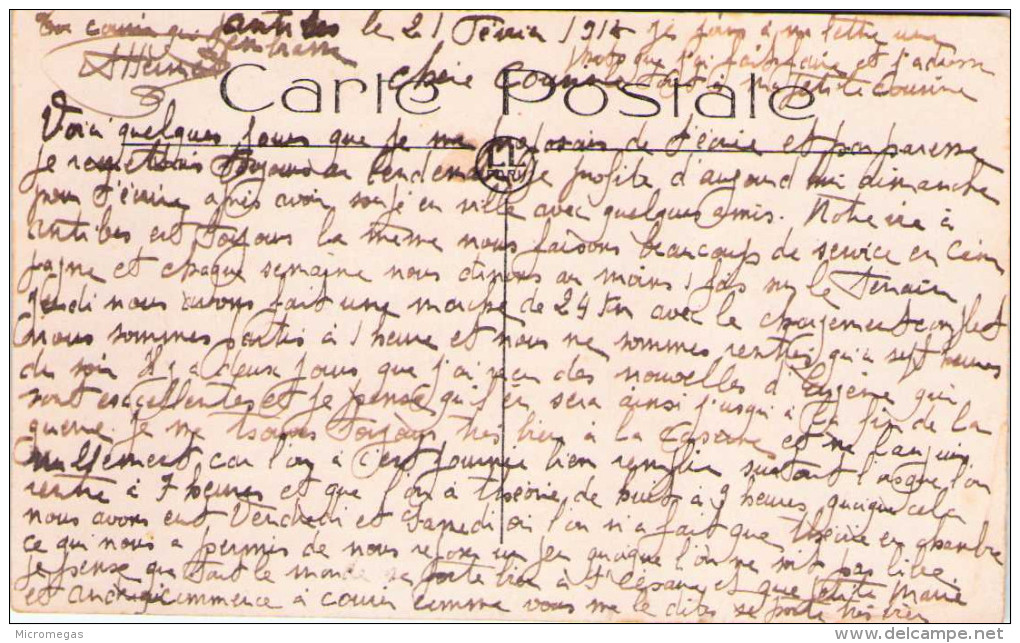 Antibes le 21 Février 191
Ton cousin qui t'embrasse
je joins à ma lettre une
photo que j'ai fait faire et j'adresse
tout à ma petite Cousine
Chère Cousine
Carte Postale
LL
PARIS
Voici quelques jours que je me proposais de t'écrire et par paresse
je remettais toujours au lendemain je profite d'aujourd'hui dimanche
pour t'écrire après avoir soupé en ville avec quelques amis. Notre vie à
Antibes est toujours la même nous faisons beaucoup de service en cam
pagne et chaque semaine nous dinons au moins 1 fois sur le Terrain
jeudi nous avons fait une marche de 24 Km avec le chargement complet
nous sommes partis à 1 heure et nous ne sommes rentrés qu'à sept heures
du soir Il y a deux jours que j'ai reçu des nouvelles d'Eugène qui
sont excellentes et je pense qu'il en sera ainsi jusqu'à la fin de la
guerre. Je me trouve toujours très bien à la Caserne et ne languis
nullement car l'on a journée bien remplie surtout lorsque l'on
rentre à 7 heures et que l'on a théorie de huit à 9 heures quoique cela
nous avons eut Vendredi et Samedi où l'on n'a fait que théorie en chambre
ce qui nous a permis de nous reposer un peu quoique l'on ne soit pas libre.
je pense que tout le monde se porte bien à et que petite Marie
et commence à courir comme vous me le dites se porte très bien
Micromegas
delcampe.net